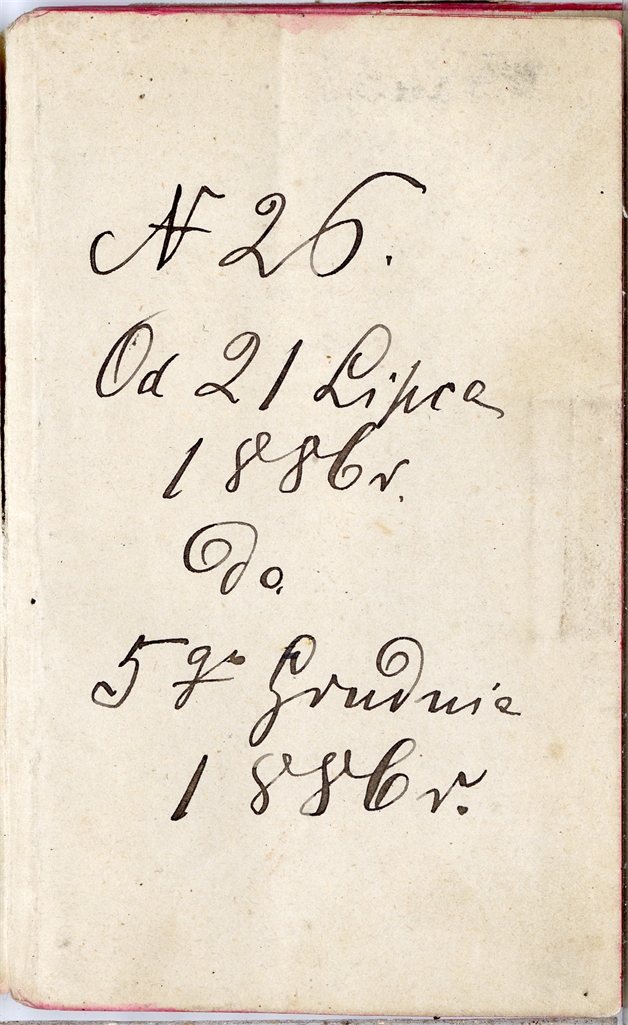 N 26.
Od 21 Lipca
1886 r.
do
5 go Grudnia
1886 r.